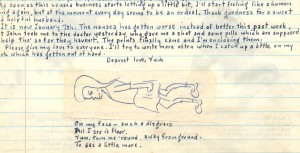 As soon as this nausea business starts letting up a little bit, I'll start feeling like a human
being again, but at the moment every day seems to be an ordeal. Thank goodness for a sweet
& helpful husband.
It is now January 7th. The nausea has gotten worse instead of better this past week,
John took me to the doctor yesterday who gave me a shot and some pills which are supposed
help that so far they haven't. The prints finally came and I'm enclosing them.
Please give my love to everyone. I'll try to write more often when I catch up a little on my
which has gotten out of hand.
Dearest love,
On my face - such a disgrace
All I see is floor.
Turn me 'round, away from ground
To see a little more.